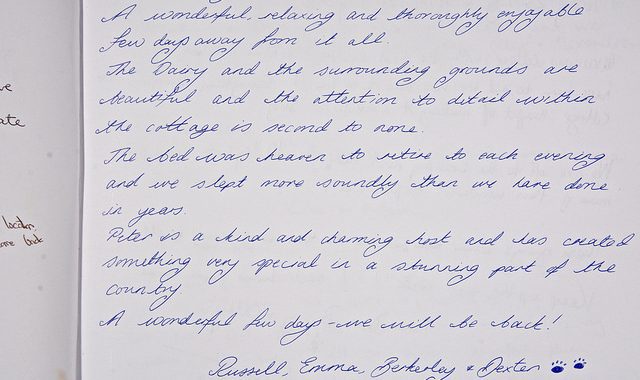 A wonderful, relaxing and thoroughly enjoyable
few days away from it all.
The Dairy and the surrounding grounds are
beautiful and the attention to detail within
the cottage is second to none.
The bed was heaven to retire to each evening
and we slept more soundly than we have done
in years.
Peter is a kind and charming host and has created
something very special in a stunning part of the
country
A wonderful few days - we will be back!
Russell, Emma, Berkerley & Dexter
ve
ate